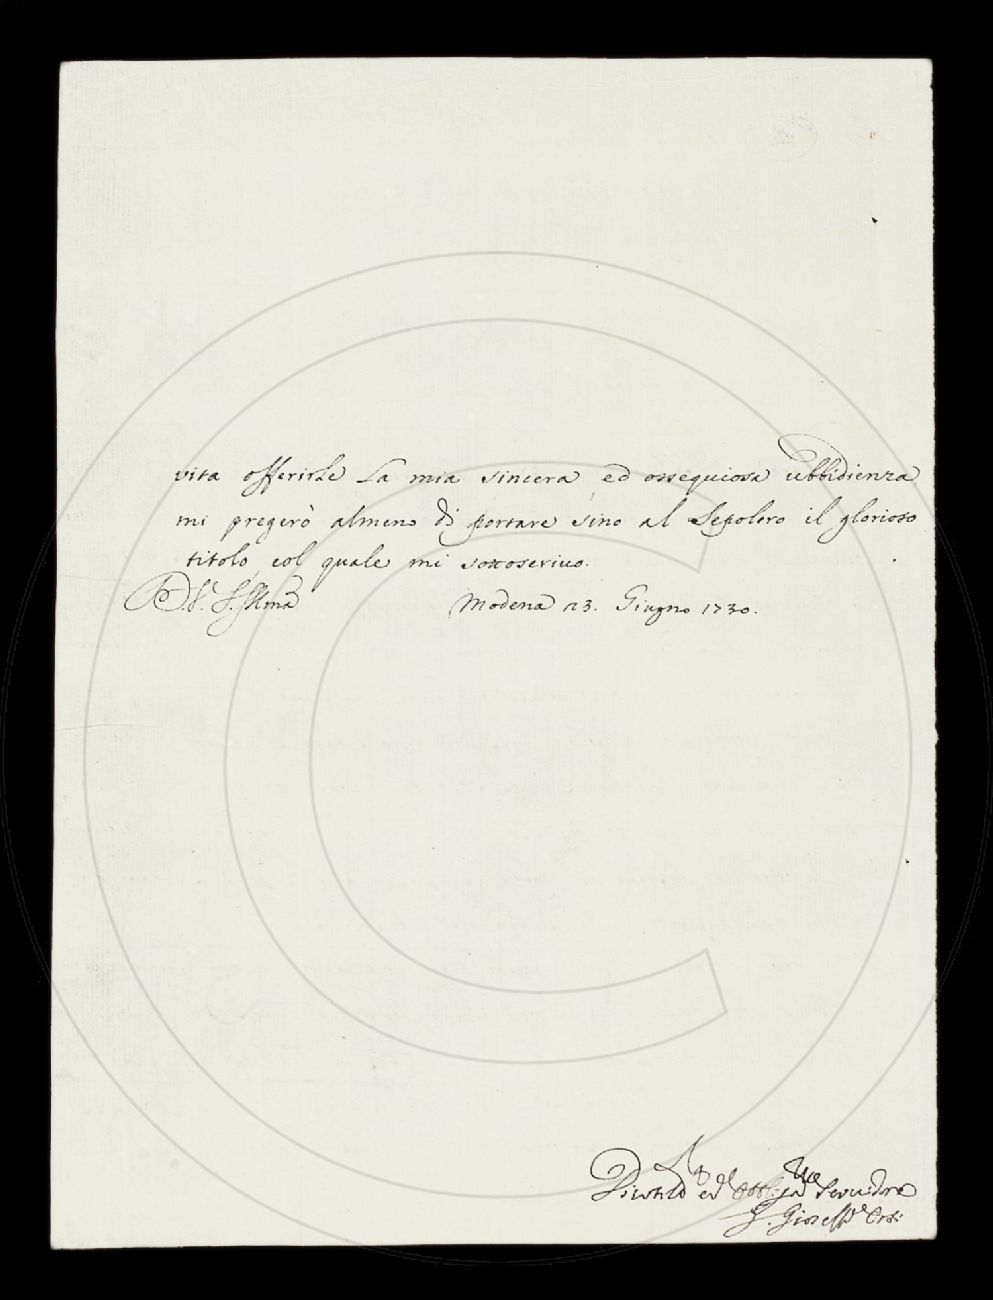 vita offerirle La mia sincera ed ossequiosa ubbidienza
mi pregerò almeno di portare sino al Sepolcro il glorioso
titolo, col quale mi sottoscrivo.
D. V. S. Illma Modena 23. Giugno 1730.
ed Servidore
G. Gioseffo